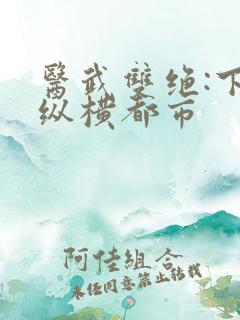 醫武雙绝:下
纵横都市
阿佳組合
未经同意禁止转载